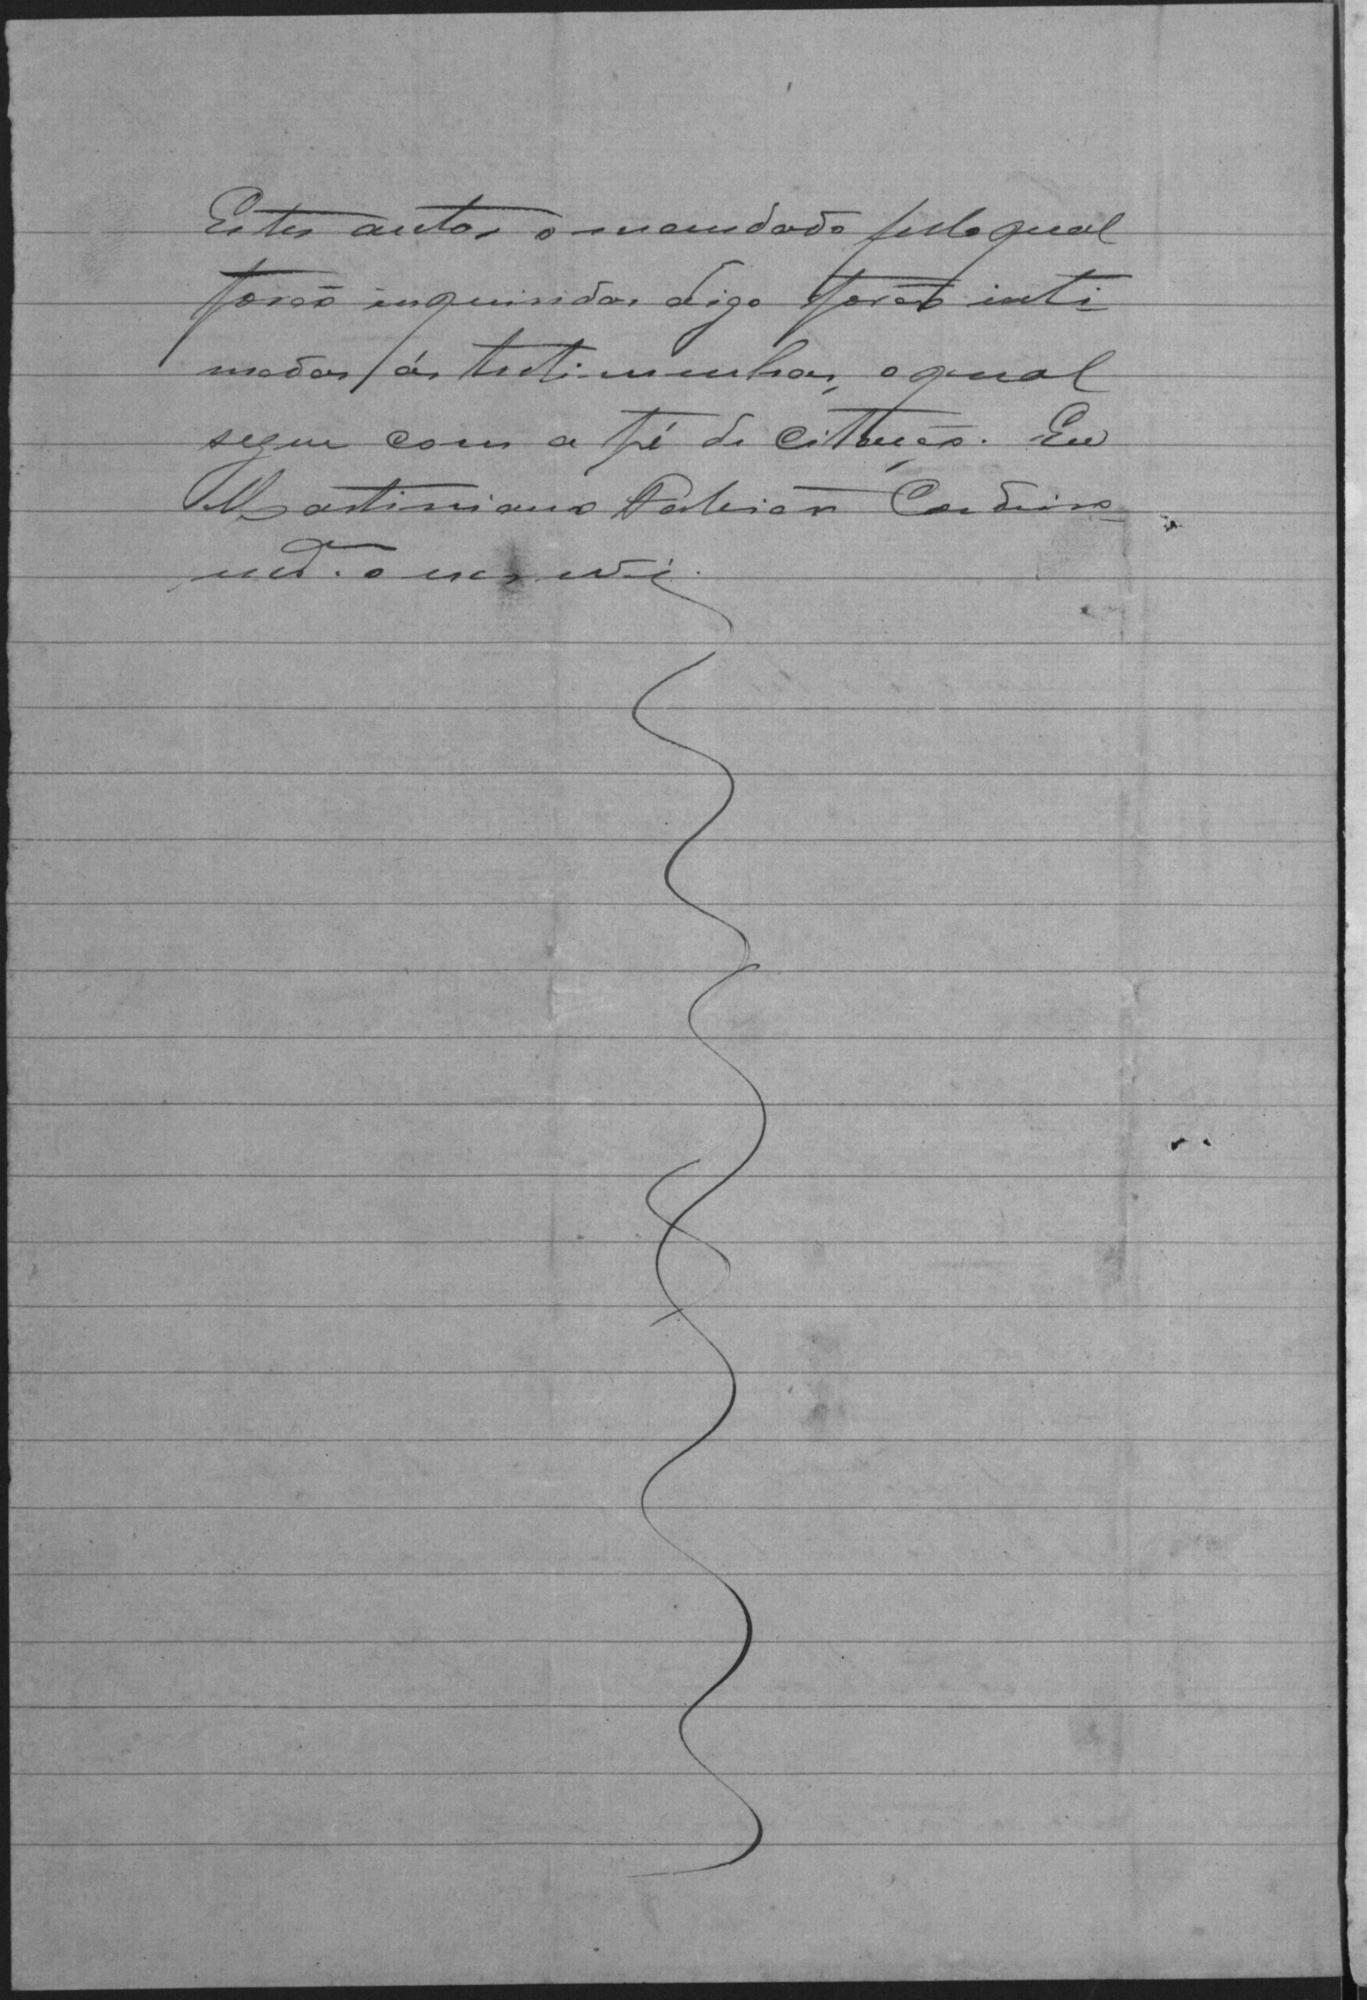 Estes autos o mandado pelo qual
forão inquiridas digo forão inti-
madas ás testimunhas, o qual
segue com a fé de citação. Eu
Martiniano Cordeiro
o escrevi.